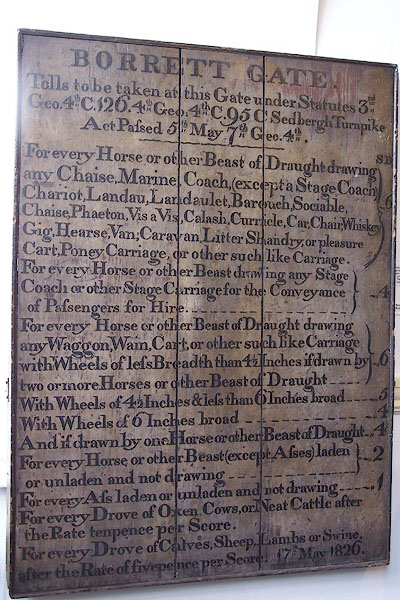 BORRETT GATE.
Tolls to be taken at this Gate under Statutes 3rd
Geo. 4th C. 126. 4th Geo. 4th C. 95 & Sedbergh Turnpike
Act Passed 5th May 7th Geo. 4th.
S D
For every Horse or other Beast of Draught drawing
any Chaise, Marine, Coach, (except a Stage Coach)
Chariot, Landau, Landaulet, Barouch, Sociable,
Chaise, Phaeton, Vis a Vis, Calash, Curricle, Car, Chair, Whiskey 6
Gig, Hearse, Van, Caravan, Litter Shandry, or pleasure
Cart, Poney Carriage, or other such like Carriage.
For every Horse or other Beast drawing any Stage
Coach or other Stage Carriage for the Conveyance 4
of Passengers for Hire.
For every Horse or other Beast of Draught drawing
any Waggon, Wain, Cart, or other such like Carriage
with Wheels of less Breadth than 4½ Inches if drawn by 6
two or more Horses or other Beast of Draught
With Wheels of 4½ Inches & less than 6 Inches broad 5
With Wheels of 6 Inches broad 4
And if drawn by one Horse or other Beast of Draught 4
For every Horse or other Beast (except Asses) laden
or unladen and not drawing 2
For every Ass laden or unladen and not drawing 1
For every Drove of Oxen, Cows, or Neat Cattle after
the Rate tenpence per Score.
For every Drove of Calves, Sheep, Lambs or Swine,
after the Rate of fivepence per Score. 17th May 1826.